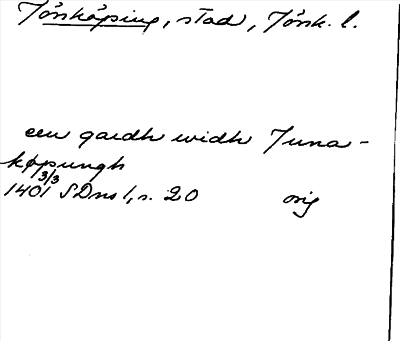 Jönköping, stad, Jönk. l.
een gardh widh Juna-
køppungh
1401 3/3 SDns 1, s. 20 orig